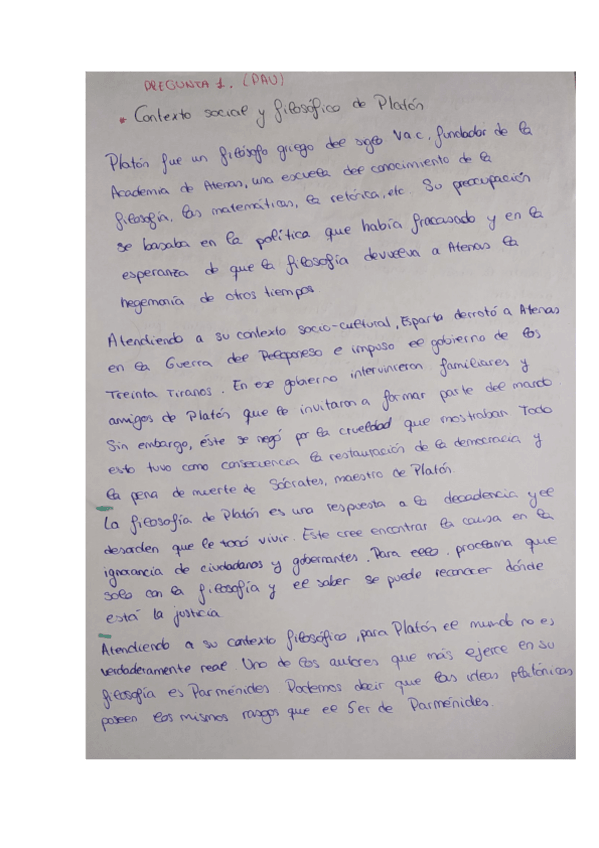 PREGUNTA 1. (PAU)
* Contexto social y filosófico de Platón
Platón fue un filósofo griego del siglo V a c, fundador de la
Academia de Atenas, una escuela del conocimiento de la
filosofía, las matemáticas, la retórica, etc. Su preocupación
se basaba en la política que había fracasado y en la
esperanza de que la filosofía devuelva a Atenas la
hegemonía de otros tiempos.
Atendiendo a su contexto socio-cultural, Esparta derrotó a Atenas
en la Guerra del Peloponeso e impuso el gobierno de los
Treinta Tiranos. En ese gobierno intervinieron familiares y
amigos de Platón que le invitaron a formar parte del mando
Sin embargo, éste se negó por la crueldad que mostraban Todo
esto tuvo como consecuencia la restauración de la democracia y
la pena de muerte de Sócrates, maestro de Platón
La filosofía de Platón es una respuesta a la decadencia y el
desorden que le tocó vivir. Este cree encontrar la causa en la
ignorancia de ciudadanos y gobernantes. Para ello, proclama que
solo con la filosofía y el saber se puede reconocer dónde
está la justicia
Atendiendo a su contexto filosófico, para Platón el mundo no es
verdaderamente real Uno de los autores que más ejerce en su
filosofía es Parménides. Podemos decir que las ideas platónicas
poseen los mismos rasgos que el Ser de Parménides.